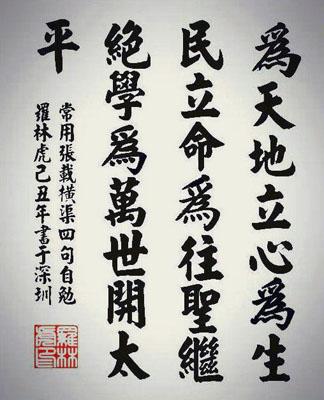 爲天地立心爲生
民立命爲往聖繼
絕學爲萬世開太
平
常用張載橫渠四句自勉
羅林虎己丑年書于深圳
羅林虎印